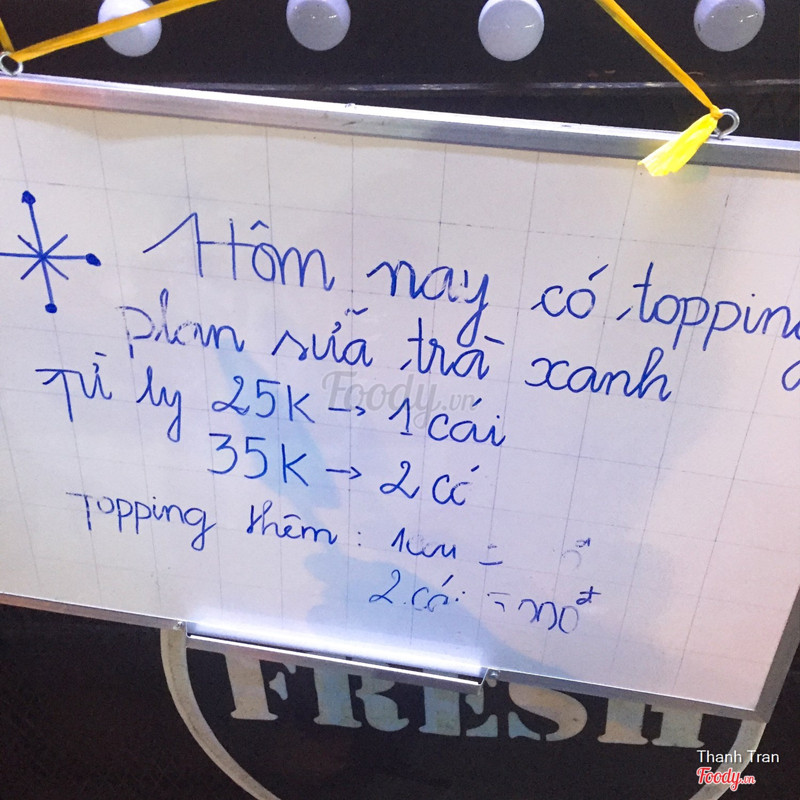 Hôm nay có topping
plan sữa trà xanh
Từ ly 25K → 1 cái
35K → 2 cá
Topping thêm : 1 =
2 cái =
FRESH
Foody.vn
Thanh Tran
Foody.vn